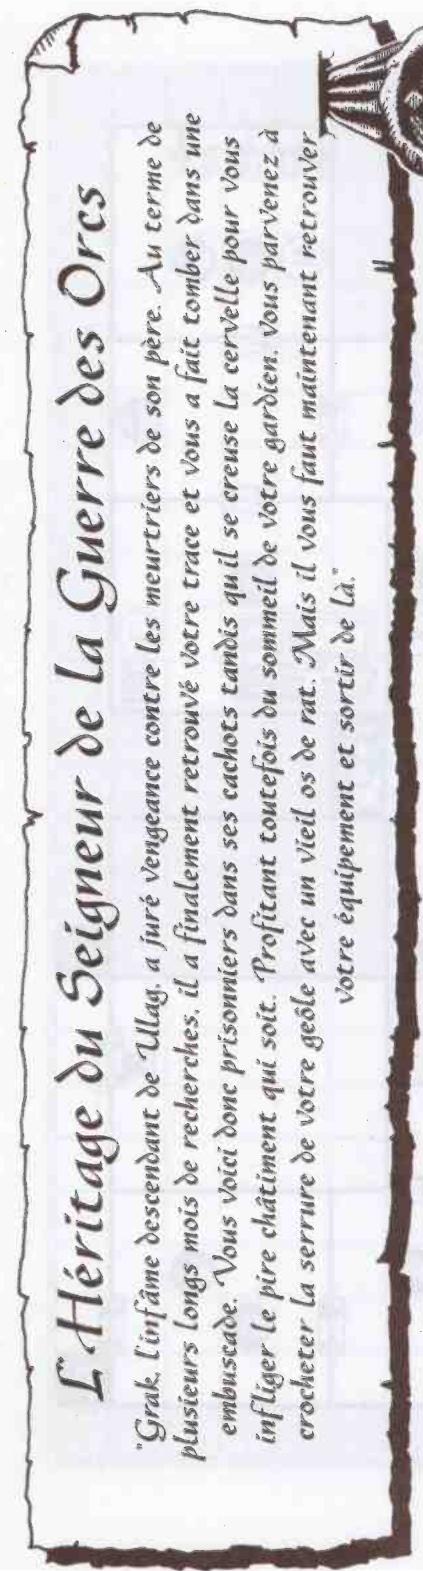 L'Héritage du Seigneur de la Guerre des Orcs
"Grak, l'infâme descendant de Ulag, a juré vengeance contre les meurtriers de son père. Au terme de
plusieurs longs mois de recherches, il a finalement retrouvé votre trace et vous a fait tomber dans une
embuscade. Vous voici donc prisonniers dans ses cachots tandis qu'il se creuse la cervelle pour vous
infliger le pire châtiment qui soit. Profitant toutefois du sommeil de votre gardien, vous parvenez à
crocheter la serrure de votre geôle avec un vieil os de rat. Mais il vous faut maintenant retrouver
votre équipement et sortir de là."